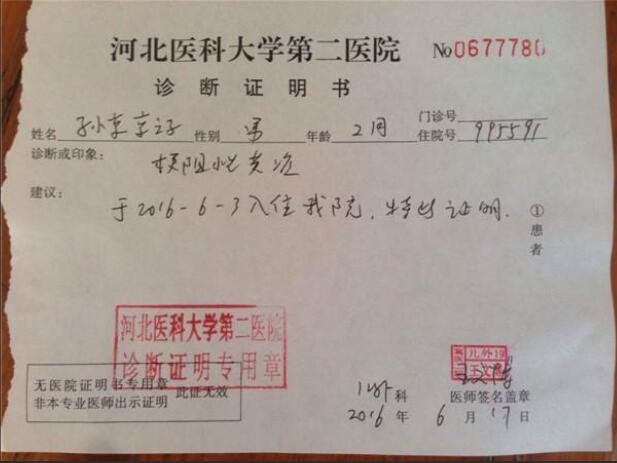 河北医科大学第二医院 No 0677780
诊断证明书
姓名 孙李京子 性别 男 年龄 2周 门诊号
住院号 995591
诊断或印象：
梗阻性黄疸
建议：
于2016-6-3入住我院，特此证明． ①患者
河北医科大学第二医院
诊断证明专用章
无医院证明书专用章
非本专业医师出示证明 此证无效
科 医师签名盖章
2016 年 6 月 17 日